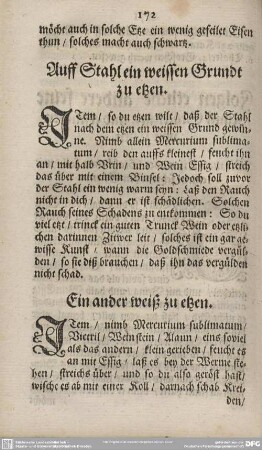 172
möcht auch in solche Etze ein wenig gefeilet Eisen
thun / solches macht auch schwartz.
Auff Stahl ein weissen Grundt
zu etzen.
ITem / so du etzen wilt / daß der Stahl
nach dem etzen ein weissen Grund gewin-
ne. Nimb allein Mercurium sublima-
tum / reib den auffs kleinest / feucht ihn
an / mit halb Vrin / und Wein Essig / streich
das über mit einem Binsel: Jedoch soll zuvor
der Stahl ein wenig warm seyn: laß den Rauch
nicht in dich / dann er ist schädlichen. Solchen
Rauch seines Schadens zu entkommen: So du
viel etz / trinck ein guten Trunck Wein oder etzli-
chen darinnen Zitwer leit / solches ist ein gar ge-
wisse Kunst / wann die Goldschmiede vergül-
den / so sie diß brauchen / daß ihn das vergülden
nicht schad.
Ein ander weiß zu etzen.
ITem / nimb Mercurium sublimatum /
Vicril / Weinstein / Alaun / eins soviel
als das andern / klein gerieben / feucht es
an mit Essig / laß es bey der Werme ste-
hen / streichs über / und so du also geröst hast /
wische es ab mit einer Koll / darnach schab Krei-
den /